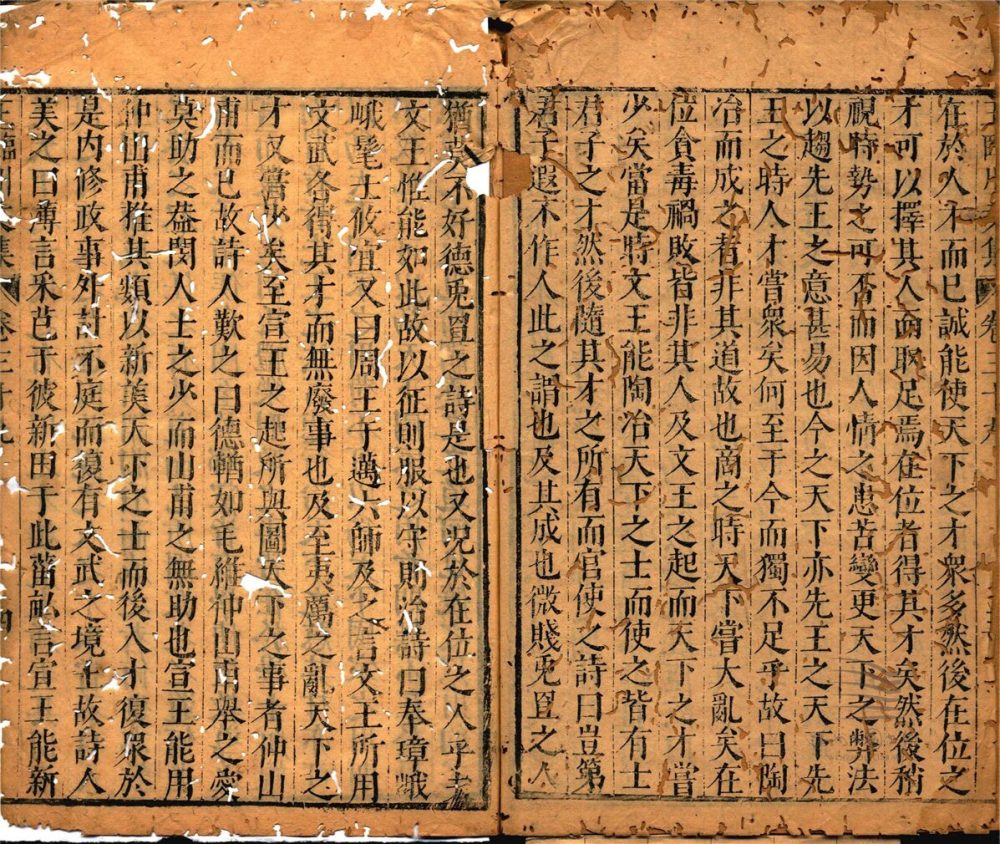 文集 卷三十九
在於人才而已誠能使天下之才衆多然後在位之
才可以擇其人而取足焉在位者得其才矣然後稍
視時勢之可否而因人情之患苦變更天下之弊法
以趨先王之意甚易也今之天下亦先王之天下先
王之時人才嘗衆矣何至于今而獨不足乎故曰陶
冶而成之者非其道故也商之時天下嘗大亂矣在
位貪毒禍敗皆非其人及文王之起而天下之才嘗
少矣當是時文王能陶冶天下之士而使之皆有士
君子之才然後隨其才之所有而官使之詩曰豈第
君子遐不作人此之謂也及其成也微賤兎罝之人
猶莫不好德兎罝之詩是也又況於在位之人乎夫
文王惟能如此故以征則服以守則治詩曰奉璋峨
峨髦士攸宜又曰周王于邁六師及之言文王所用
文武各得其才而無廢事也及至夷厲之亂天下之
才又嘗少矣至宣王之起所與圖天下之事者仲山
甫而已故詩人歎之曰德輶如毛維仲山甫舉之愛
莫助之蓋閔人士之少而山甫之無助也宣王能用
仲山甫推其類以新美天下之士而後人才復衆於
是內修政事外討不庭而復有文武之境土故詩人
美之曰薄言采芑于彼新田于此菑畝言宣王能新
王臨川文集 卷三十九 四